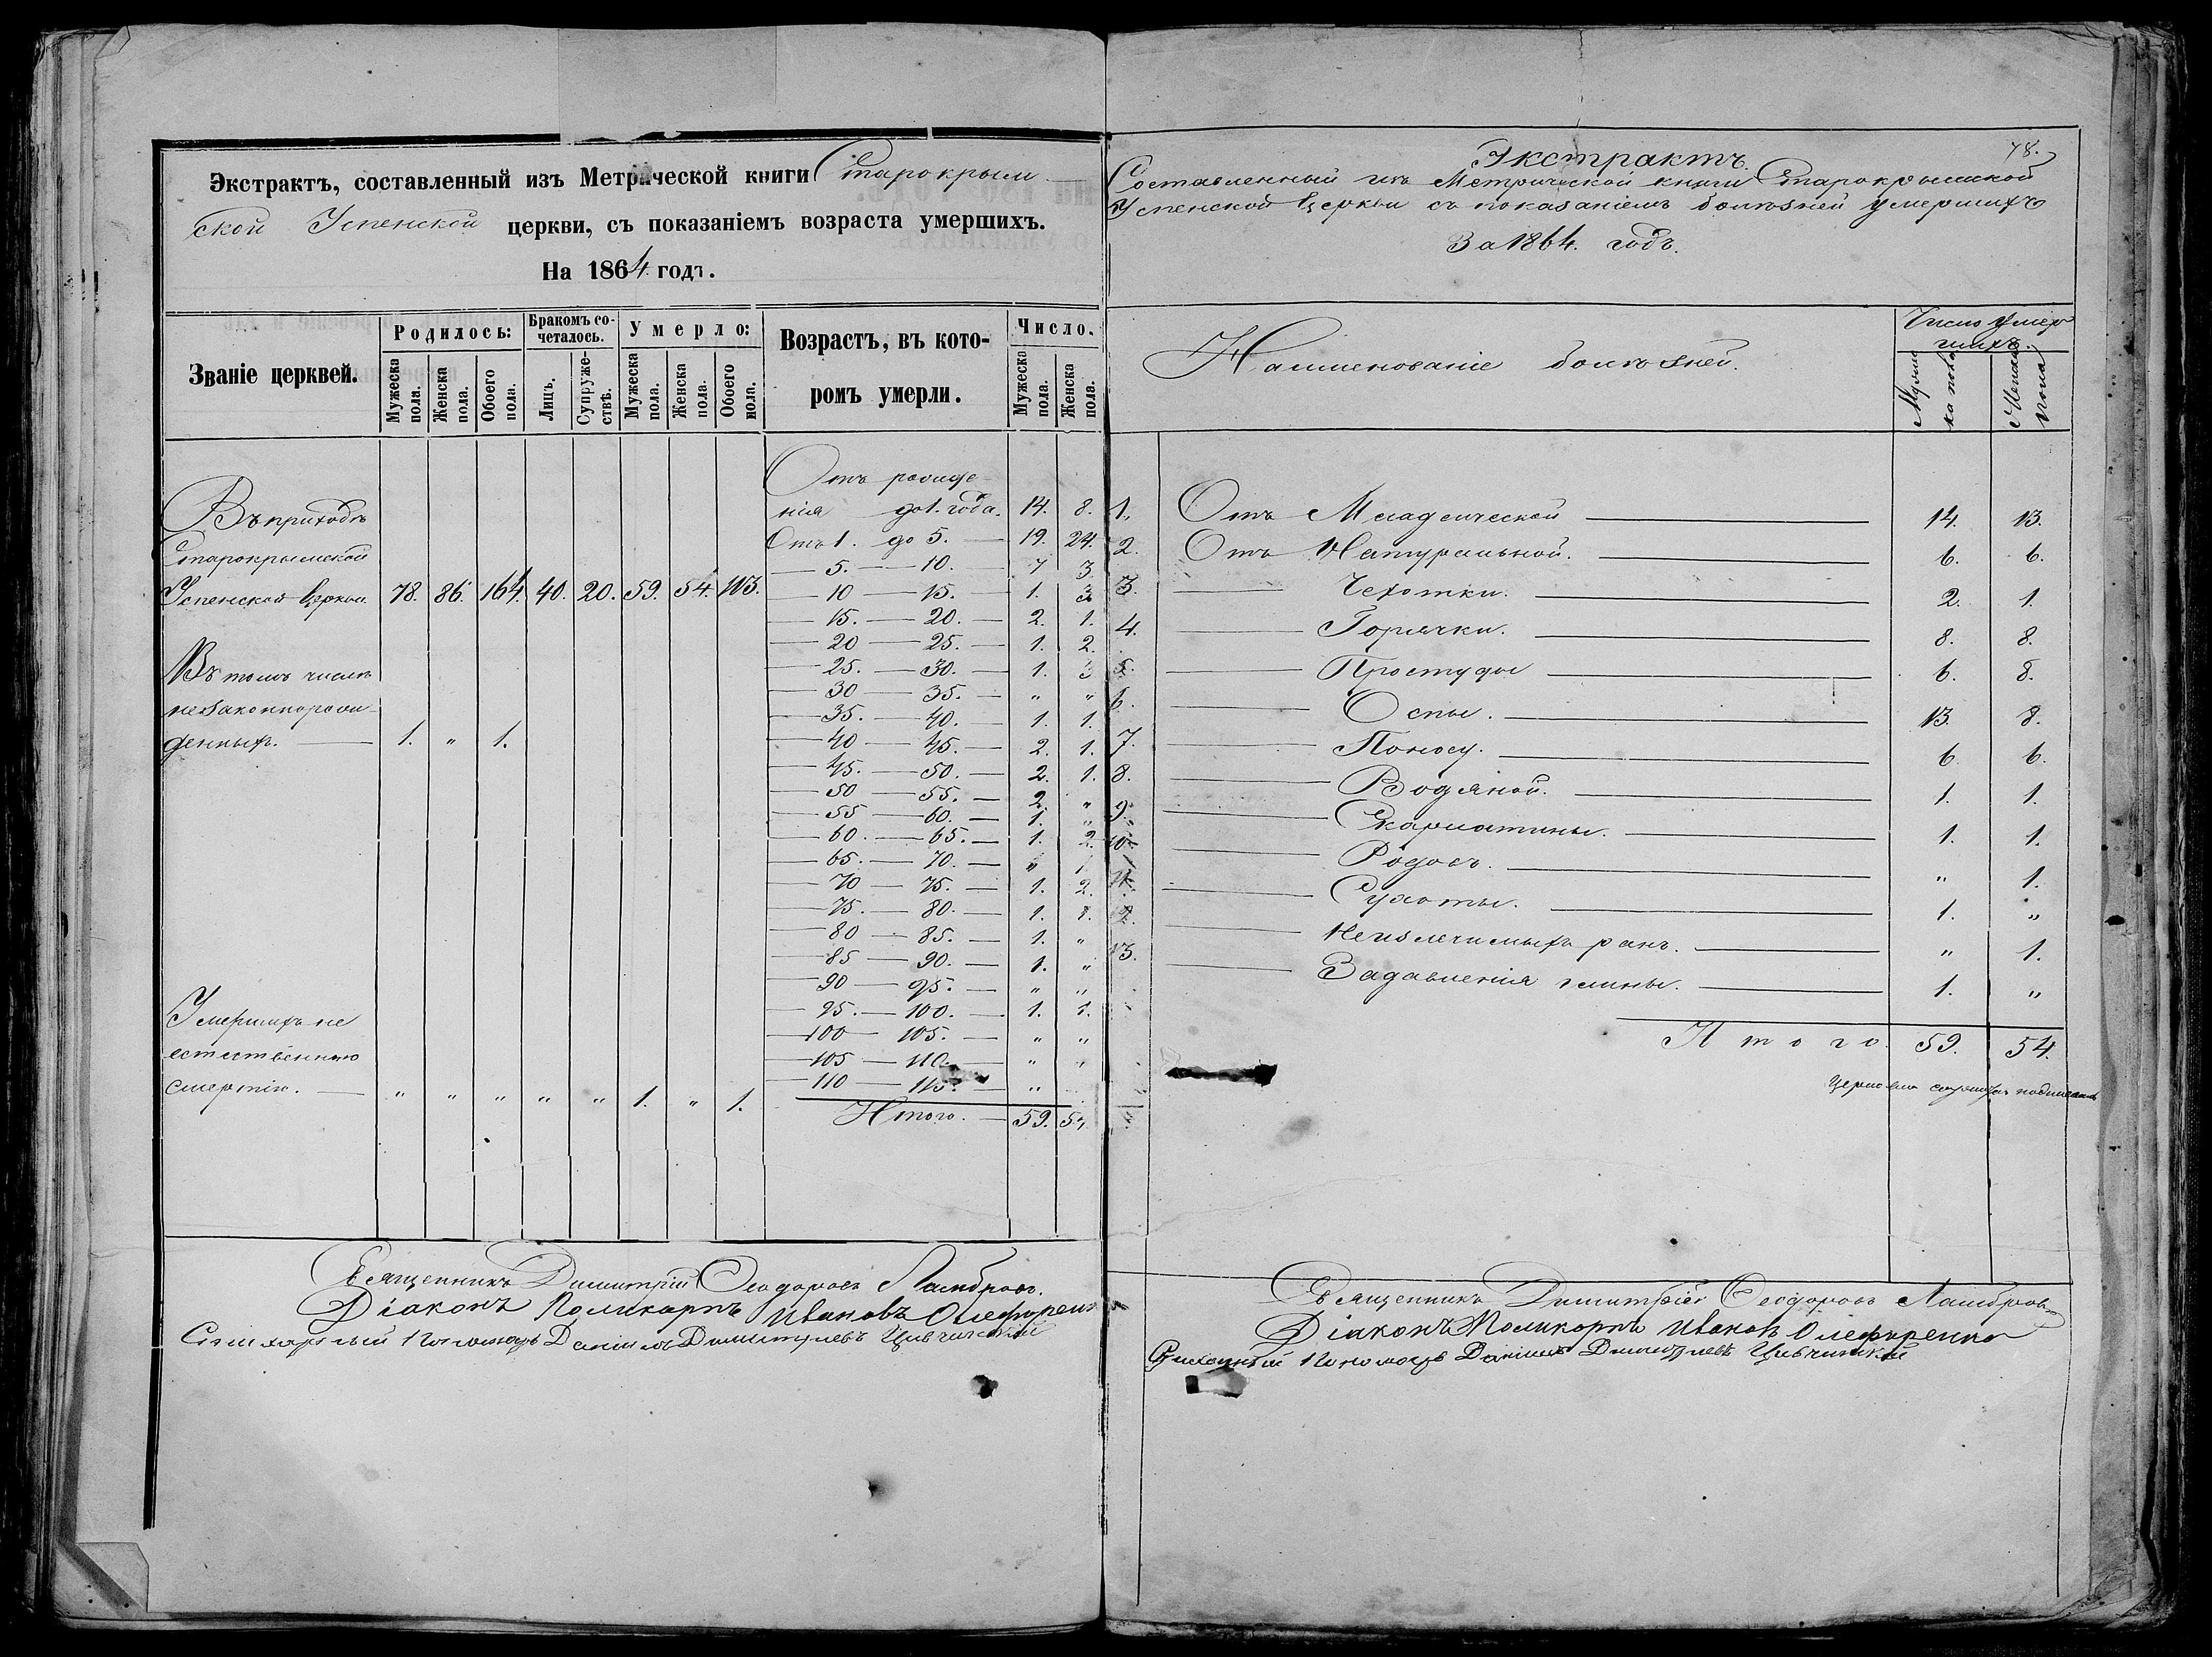 Экстрактъ, составленный изъ Метрической книги Старокрым-
ской Успенской церкви, съ показаніемъ возраста умершихъ.
На 1864. годъ.
Званіе церквей. Родилось: Бракомъ сочеталось. Умерло: Возрастъ, въ которомъ умерли. Число.
Мужеска пола. Женска пола. Обоего пола. Лицъ. Супружествъ. Мужеска пола. Женска пола. Обоего пола. Мужеска пола. Женска пола.
Въ приходѣ
Старокрымской
Успенской Церкви. 78. 86. 164. 40. 20. 59. 54. 113.
Въ томъ числѣ
незаконнорож-
денныхъ. — 1. " 1.
Умершихъ не
естественною
смертію. — " " " " " 1. " 1.
Отъ рожде-
нія до 1. года. 14. 8.
Отъ 1. до 5. — 19. 24.
— 5. — 10. — 7 3.
— 10 — 15. — 1. 3
— 15. — 20. — 2. 1.
— 20 — 25. — 1. 2.
— 25. — 30. — 1. 3
— 30 — 35. — " "
— 35. — 40. — 1. 1.
— 40 — 45. — 2. 1.
— 45. — 50. — 2. 1.
— 50 — 55. — 2. "
— 55 — 60. — 1. "
— 60. — 65. — 1. 2.
— 65. — 70. — " 1
— 70 — 75. — 1. 2.
— 75. — 80. — 1. 1.
— 80 — 85. — 1. "
— 85 — 90. — 1. "
— 90 — 95. — " "
— 95. — 100. — 1. 1.
— 100 — 105. — " "
— 105 — 110. — " "
— 110 — 115. — "
Итого. — 59. 54
Священникъ Димитрій Ѳеодоровъ Ламбровъ.
Діаконъ Поликарпъ Ивановъ Олефирен
Пономарь Даніилъ Димитріевъ
78.
Экстрактъ.
Составленный изъ Метрической книги Старокрымской
Успенской Церкви съ показаніемъ болѣзней умершихъ
За 1864. годъ.
Наименованіе болѣзней. Число умер
шихъ.
Мужес
ка пола Женска
пола
1. Отъ Младенческой — 14. 13.
2. Отъ Натуральной. — 6. 6.
3. — Чехотки. — 2. 1.
4. — Горячки. — 8. 8.
5. — Простуды — 6. 8.
6. — Оспы. — 13. 8.
7. — Поносу. — 6 6.
8. — Водяной. — 1. 1.
9. — Скарлатины. — 1. 1.
10. — Родовъ. — " 1.
11. — Сухоты. — 1. "
12. — Неизлечимыхъ ранъ. — " 1.
13. — Задавленія глины. — 1. "
Итого. 59. 54.
Священникъ Димитрій Ѳеодоровъ Ламбровъ
Діаконъ Поликарпъ Ивановъ Олефиренко
Пономарь Даніилъ Димитріевъ